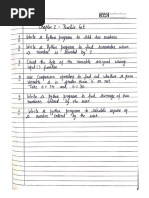 Chapter 2 - Practice Set
1 Write a Python program to add two numbers
2 Write a Python program to find remainder when
a number is divided by 2
3 Check the type of the variable assigned using
input () function
4 Use Comparison operators to find out whether a given
variable a is greater than b or not
Take a = 34 and b = 80
5 Write a Python program to find average of two
numbers entered by the user
6 Write a Python program to calculate square of
a number entered by the user